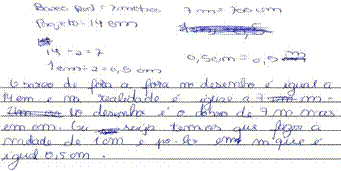 Barco real = 7 metros 7 m = 700 cm
Projeto = 14 cm
14 ÷ 2 = 7 0,5cm = 0,5 m
1 cm ÷ 2 = 0,5 cm
O barco de fora a fora no desenho é igual a
14 cm e na realidade é igual a 7 m -
o desenho é o dobro de 7 m mas
em cm. Ou seija temos que fazer a
metade de 1 cm e po-los em m que é
igual 0,5 cm.